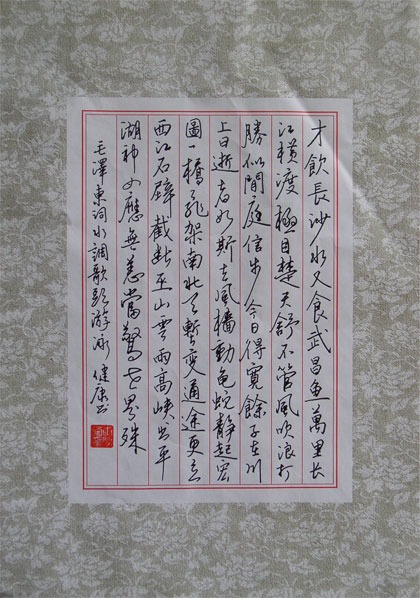 才飲長沙水又食武昌鱼萬里长
江横渡極目楚天舒不管風吹浪打
勝似閒庭信步今日得寬餘子在川
上曰逝者如斯夫風檣動龟蛇静起宏
圖一橋飛架南北天暫變通途更立
西江石壁截斷巫山雲雨高峡出平
湖神女應無恙當驚世界殊
毛澤東詞水調歌頭游泳 健康书